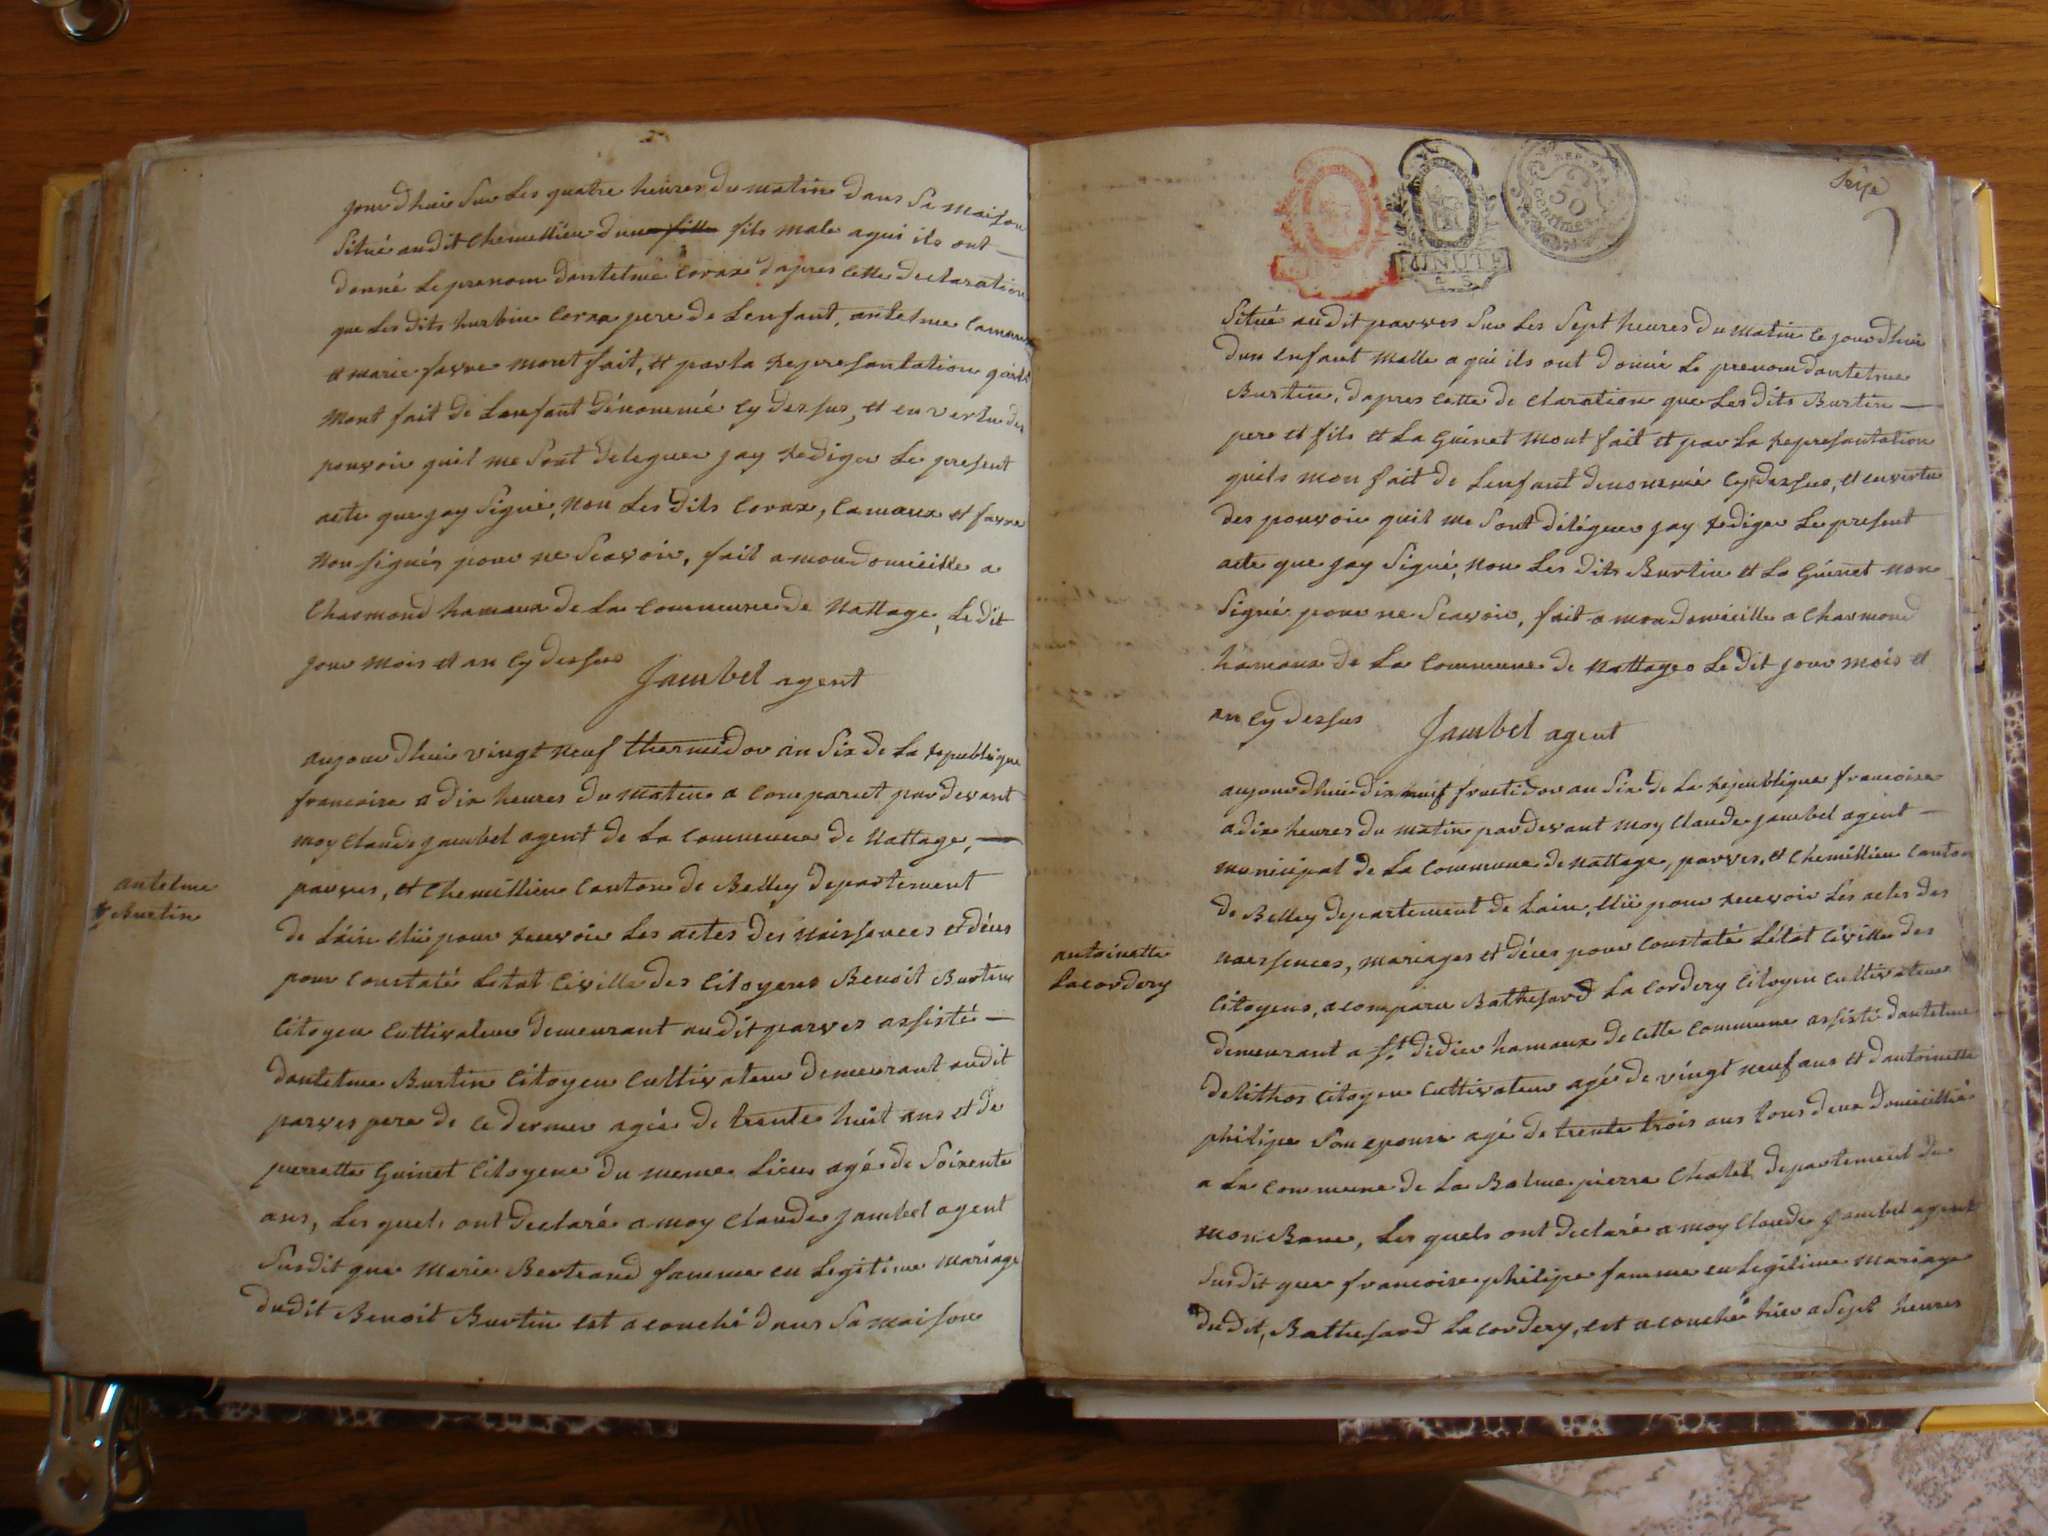 jourdhuie Sur Les quatre heures du matin dans Sa maison
Situé audit Chemillieu dun fils male a qui ils ont
donné Le prenom dantelme Corax d'apres cette declaration
que Les dits hurbin Corax pere de Lenfant, antelme Camaux
et marie favre mont fait, et par la representation quils
mont fait de Lenfant dénonemé Cy dessus, et en vertu des
pouvoir quil me Sont deleguer jay rediger Le present
acte que jay Signé, non Les dits Corax, Camaux et favre
non signés pour ne Scavoir, fait a mon domicille a
Charmond hamaux de La Commune de Nattage, Ledit
jour mois et an Cy dessus
Jambel agent
aujourdhuie vingt neuf thermidor an Six de La republique
francoise a dix heures du matin a Comparut par devant
moy Claude jambel agent de La Commune de Nattage,
parves, et Chemillieu Canton de Belley departement
antelme
Burtin
de Lain Elü pour recevoir Les actes des Naissences et déces
pour Constaté Letat Civille des Citoyens Benoit Burtin
Citoyen Cultivateur demeurant audit parves assisté
dantelme Burtin Citoyen Cultivateur demeurant audit
parves pere de Ce dernier agée de trente huit ans et de
pierrette Guinet Citoyene du meme Lieu agé de Soixente
ans, Les quels ont declaré a moy Claude jambel agent
Susdit que Marie Bertrand famme en Legitime mariage
dudit Benoit Burtin est acouché dans Sa maison
MINUTE
Situé audit parves Sur Les Sept heures du matin Ce jourdhui
dun enfant malle a qui ils ont donné Le prenom dantelme
Burtin, dapres Cette declaration que Lesdits Burtin
pere et fils et La Guinet mont fait et par La representation
quils mon fait de Lenfant denonemé Cy dessus, et en vertu
des pouvoir quil me Sont déléguer jay rediger Le present
acte que jay Signé, non Les dits Burtin et La Guinet non
Signé pour ne Scavoir, fait a mon domicille a Charmond
hamaux de La Commune de Nattages Le dit jour mois et
an Cy dessus
Jambel agent
aujourdhuie dix fructidor an Six de La republique francoise
a dix heures du matin par devant moy Claude jambel agent
municipal de La Commune de Nattage, parves, et Chemillieu Canton
de Belley departement de Lain, Elü pour recevoir Les actes des
antoinette
Lacordery
naissences, mariages et déces pour Constaté Létat Civille des
Citoyens, a comparu Bathesard La Cordery Citoyen Cultivateur
demeurant a St didier hamaux de Cette Commune assisté dantelme
Citoyen Cultivateur agé de vingt neuf ans et dantoinette
philipe Son epouse agé de trente trois ans tous deux domicillié
a La Commune de La Balme pierre Chatel departement du
mon Banc, Les quels ont declaré a moy Claude jambel agent
Susdit que francoise philipe famme en Legitime mariage
dudit, Bathesard La Cordery, est acouché hier a Sept heures